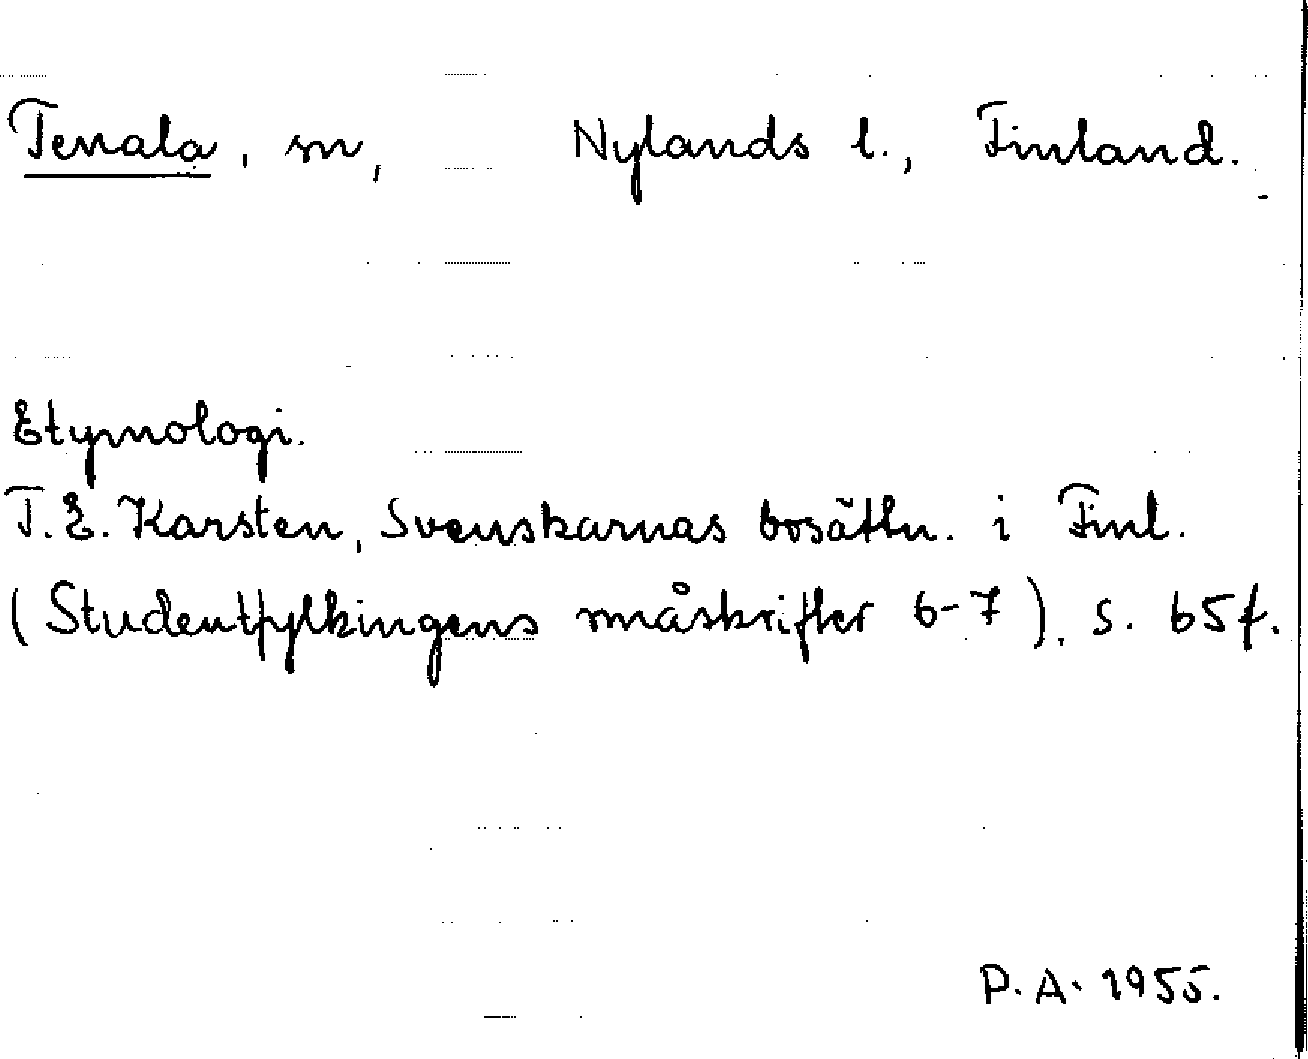 Tenala, sn, Nylands l., Finland.
Etymologi.
T.E. Karsten, Svenskarnas bosättn. i Finl.
(Studentfylkingens småskrifter 6-7). s. 65f.
P.A. 1955.